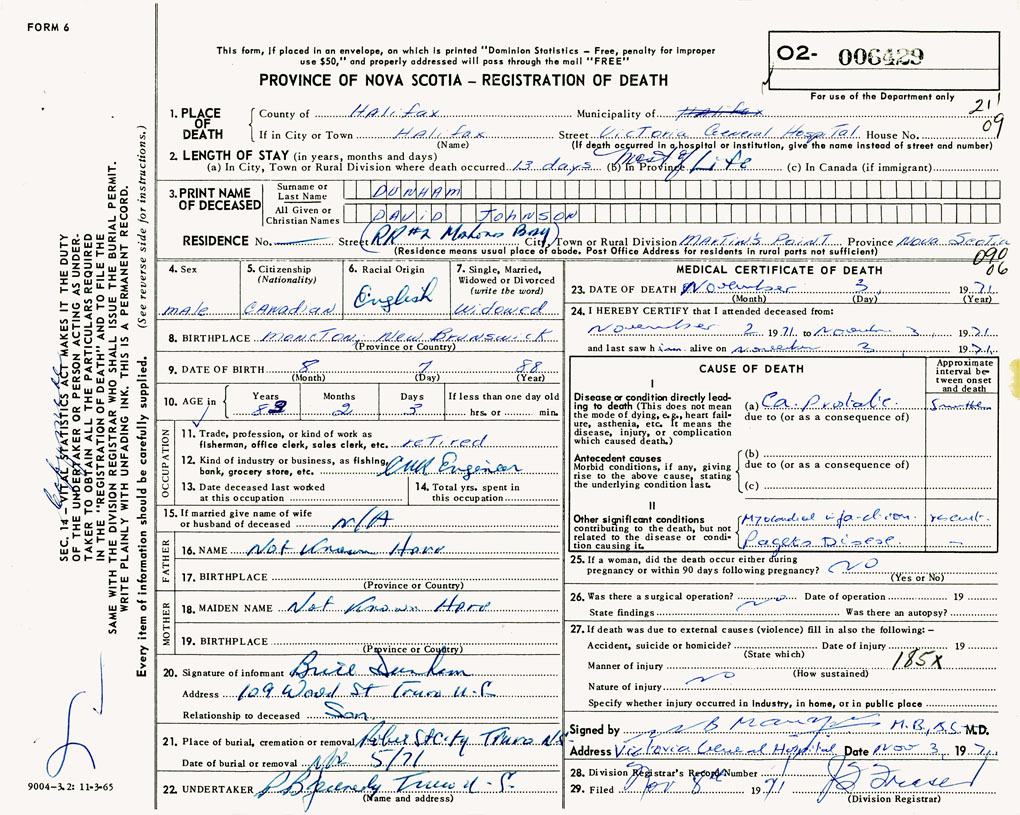 FORM 6
This form, if placed in an envelope, on which is printed "Dominion Statistics – Free, penalty for improper
use $50," and properly addressed will pass through the mail "FREE"
PROVINCE OF NOVA SCOTIA – REGISTRATION OF DEATH
O2- 006429
For use of the Department only
211
09
1. PLACE OF DEATH
County of Halifax Municipality of Halifax
If in City or Town Halifax Street Victoria General Hospital House No.
(Name) (If death occurred in a hospital or institution, give the name instead of street and number)
2. LENGTH OF STAY (in years, months and days)
(a) In City, Town or Rural Division where death occurred 13 days (b) In Province most of Life (c) In Canada (if immigrant)
3. PRINT NAME OF DECEASED
Surname or Last Name DUNHAM
All Given or Christian Names DAVID JOHNSON
RESIDENCE No. Street (RR #2 Mahone Bay) City, Town or Rural Division MARTIN'S POINT Province NOVA SCOTIA
(Residence means usual place of abode. Post Office Address for residents in rural parts not sufficient)
090
06
4. Sex male
5. Citizenship (Nationality) Canadian
6. Racial Origin English
7. Single, Married, Widowed or Divorced (write the word) Widowed
8. BIRTHPLACE Moncton, New Brunswick
(Province or Country)
9. DATE OF BIRTH 8 7 88
(Month) (Day) (Year)
10. AGE in Years Months Days If less than one day old
83 2 3 hrs. or min.
OCCUPATION
11. Trade, profession, or kind of work as
fisherman, office clerk, sales clerk, etc. retired
12. Kind of industry or business, as fishing,
bank, grocery store, etc. CNR Engineer
13. Date deceased last worked
at this occupation
14. Total yrs. spent in
this occupation
15. If married give name of wife
or husband of deceased n/A
FATHER
16. NAME Not Known Here
17. BIRTHPLACE
(Province or Country)
MOTHER
18. MAIDEN NAME Not Known Here
19. BIRTHPLACE
(Province or Country)
20. Signature of informant Dunham
Address 109 Wood St Truro N.S
Relationship to deceased Son
21. Place of burial, cremation or removal Truro N.S
Date of burial or removal Nov 5/71
22. UNDERTAKER Truro N.S.
(Name and address)
MEDICAL CERTIFICATE OF DEATH
23. DATE OF DEATH November 3, 1971
(Month) (Day)
24. I HEREBY CERTIFY that I attended deceased from:
November 2 1971 to November 3, 1971
and last saw him alive on November 3 1971
CAUSE OF DEATH
Approximate interval between onset and death
I
Disease or condition directly leading to death (This does not
mean the mode of dying, e.g., heart failure, asthenia, etc. It means the
disease, injury, or complication
which caused death.)
(a) Ca. Prostate.
due to (or as a consequence of)
Antecedent causes
Morbid conditions, if any, giving
rise to the above cause, stating
the underlying condition last.
(b)
due to (or as a consequence of)
(c)
II
Other significant conditions
contributing to the death, but not
related to the disease or condition causing it.
Myocardial infarction. recent.
Pagets Disese. –
25. If a woman, did the death occur either during
pregnancy or within 90 days following pregnancy? NO
(Yes or No)
26. Was there a surgical operation? no Date of operation 19
State findings Was there an autopsy?
27. If death was due to external causes (violence) fill in also the following: –
Accident, suicide or homicide? Date of injury 19
(State which) 185X
Manner of injury
(How sustained)
Nature of injury no
Specify whether injury occurred in industry, in home, or in public place
Signed by M.B., B.S. M.D.
Address Victoria General Hospital Date Nov 3 1971
28. Division Registrar's Record Number
29. Filed Nov 8th 1971 Fraser
(Division Registrar)
SEC. 14 – VITAL STATISTICS ACT MAKES IT THE DUTY
OF THE UNDERTAKER OR PERSON ACTING AS UNDER-
TAKER TO OBTAIN ALL THE PARTICULARS REQUIRED
IN THE "REGISTRATION OF DEATH" AND TO FILE THE
SAME WITH THE DIVISION REGISTRAR WHO SHALL ISSUE THE BURIAL PERMIT.
WRITE PLAINLY WITH UNFADING INK. THIS IS A PERMANENT RECORD.
Every item of information should be carefully supplied. (See reverse side for instructions.)
9004–3.2: 11-3-65